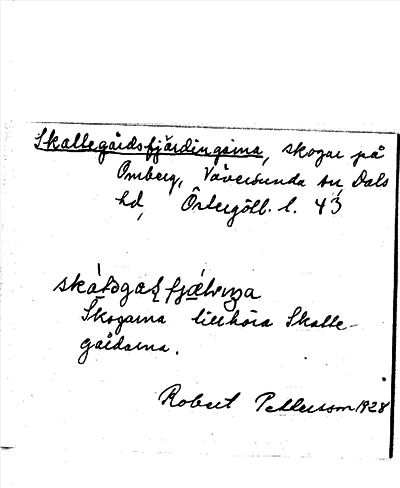 Skallegårdsfjärdingarna, skogar på
Omberg, Väversunda sn, Dals
hd, Östergötl. l. 43
Skogarna tillhöra Skalle-
gårdarna.
Robert Pettersson 1928